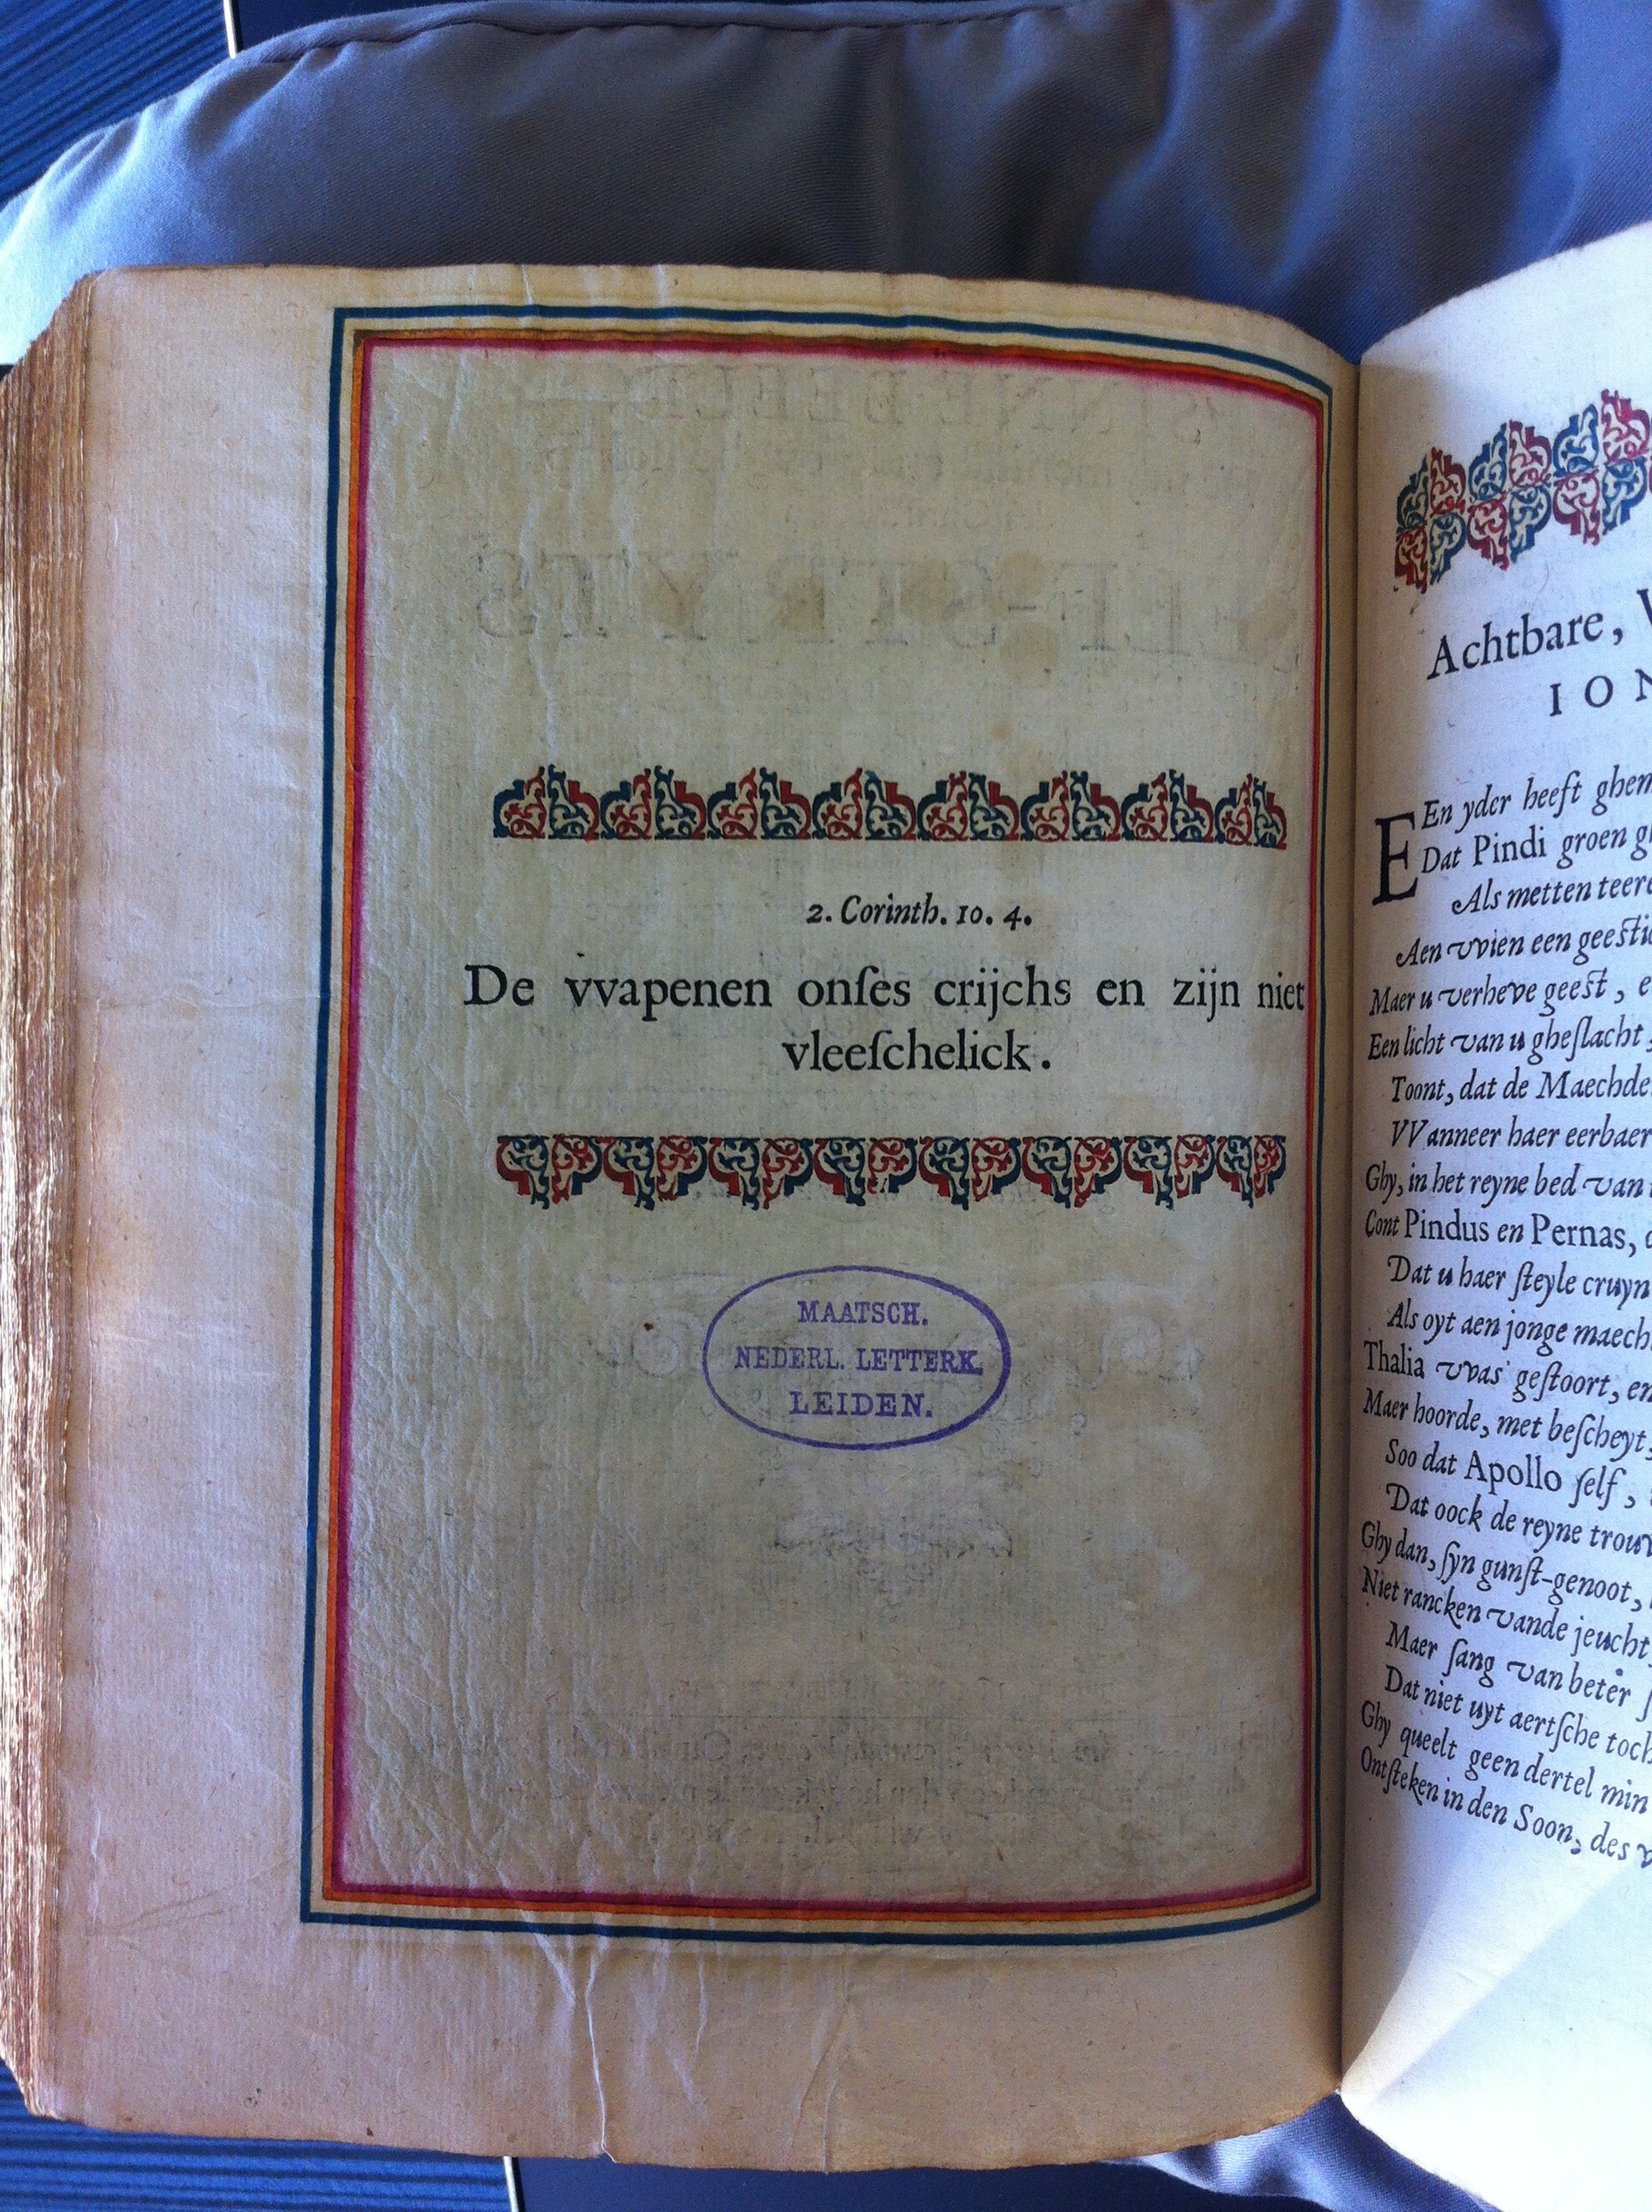 2. Corinth. 10. 4.
De vvapenen onſes crijchs en zijn niet
vleeſchelick.
MAATSCH.
NEDERL. LETTERK.
LEIDEN.
Achtbare,
ION
EEn yder heeft ghem
Dat Pindi groen
Als metten teere
Aen vvien een geeſti
Maer u verheve geeſt,
Een licht van u gheſlacht,
Toont, dat de Maechde
VVanneer haer eerbaer
Ghy, in het reyne bed van
Cont Pindus en Pernas,
Dat u haer ſteyle cruyn
Als oyt aen jonge maech
Thalia vvas geſtoort, en
Maer hoorde, met beſcheyt,
Soo dat Apollo ſelf,
Dat oock de reyne trouv
Ghy dan, ſyn gunſt-genoot,
Niet rancken vande jeucht,
Maer ſang van beter
Dat niet uyt aertſche toch
Ghy queelt geen dertel min
Ontſteken in den Soon, des